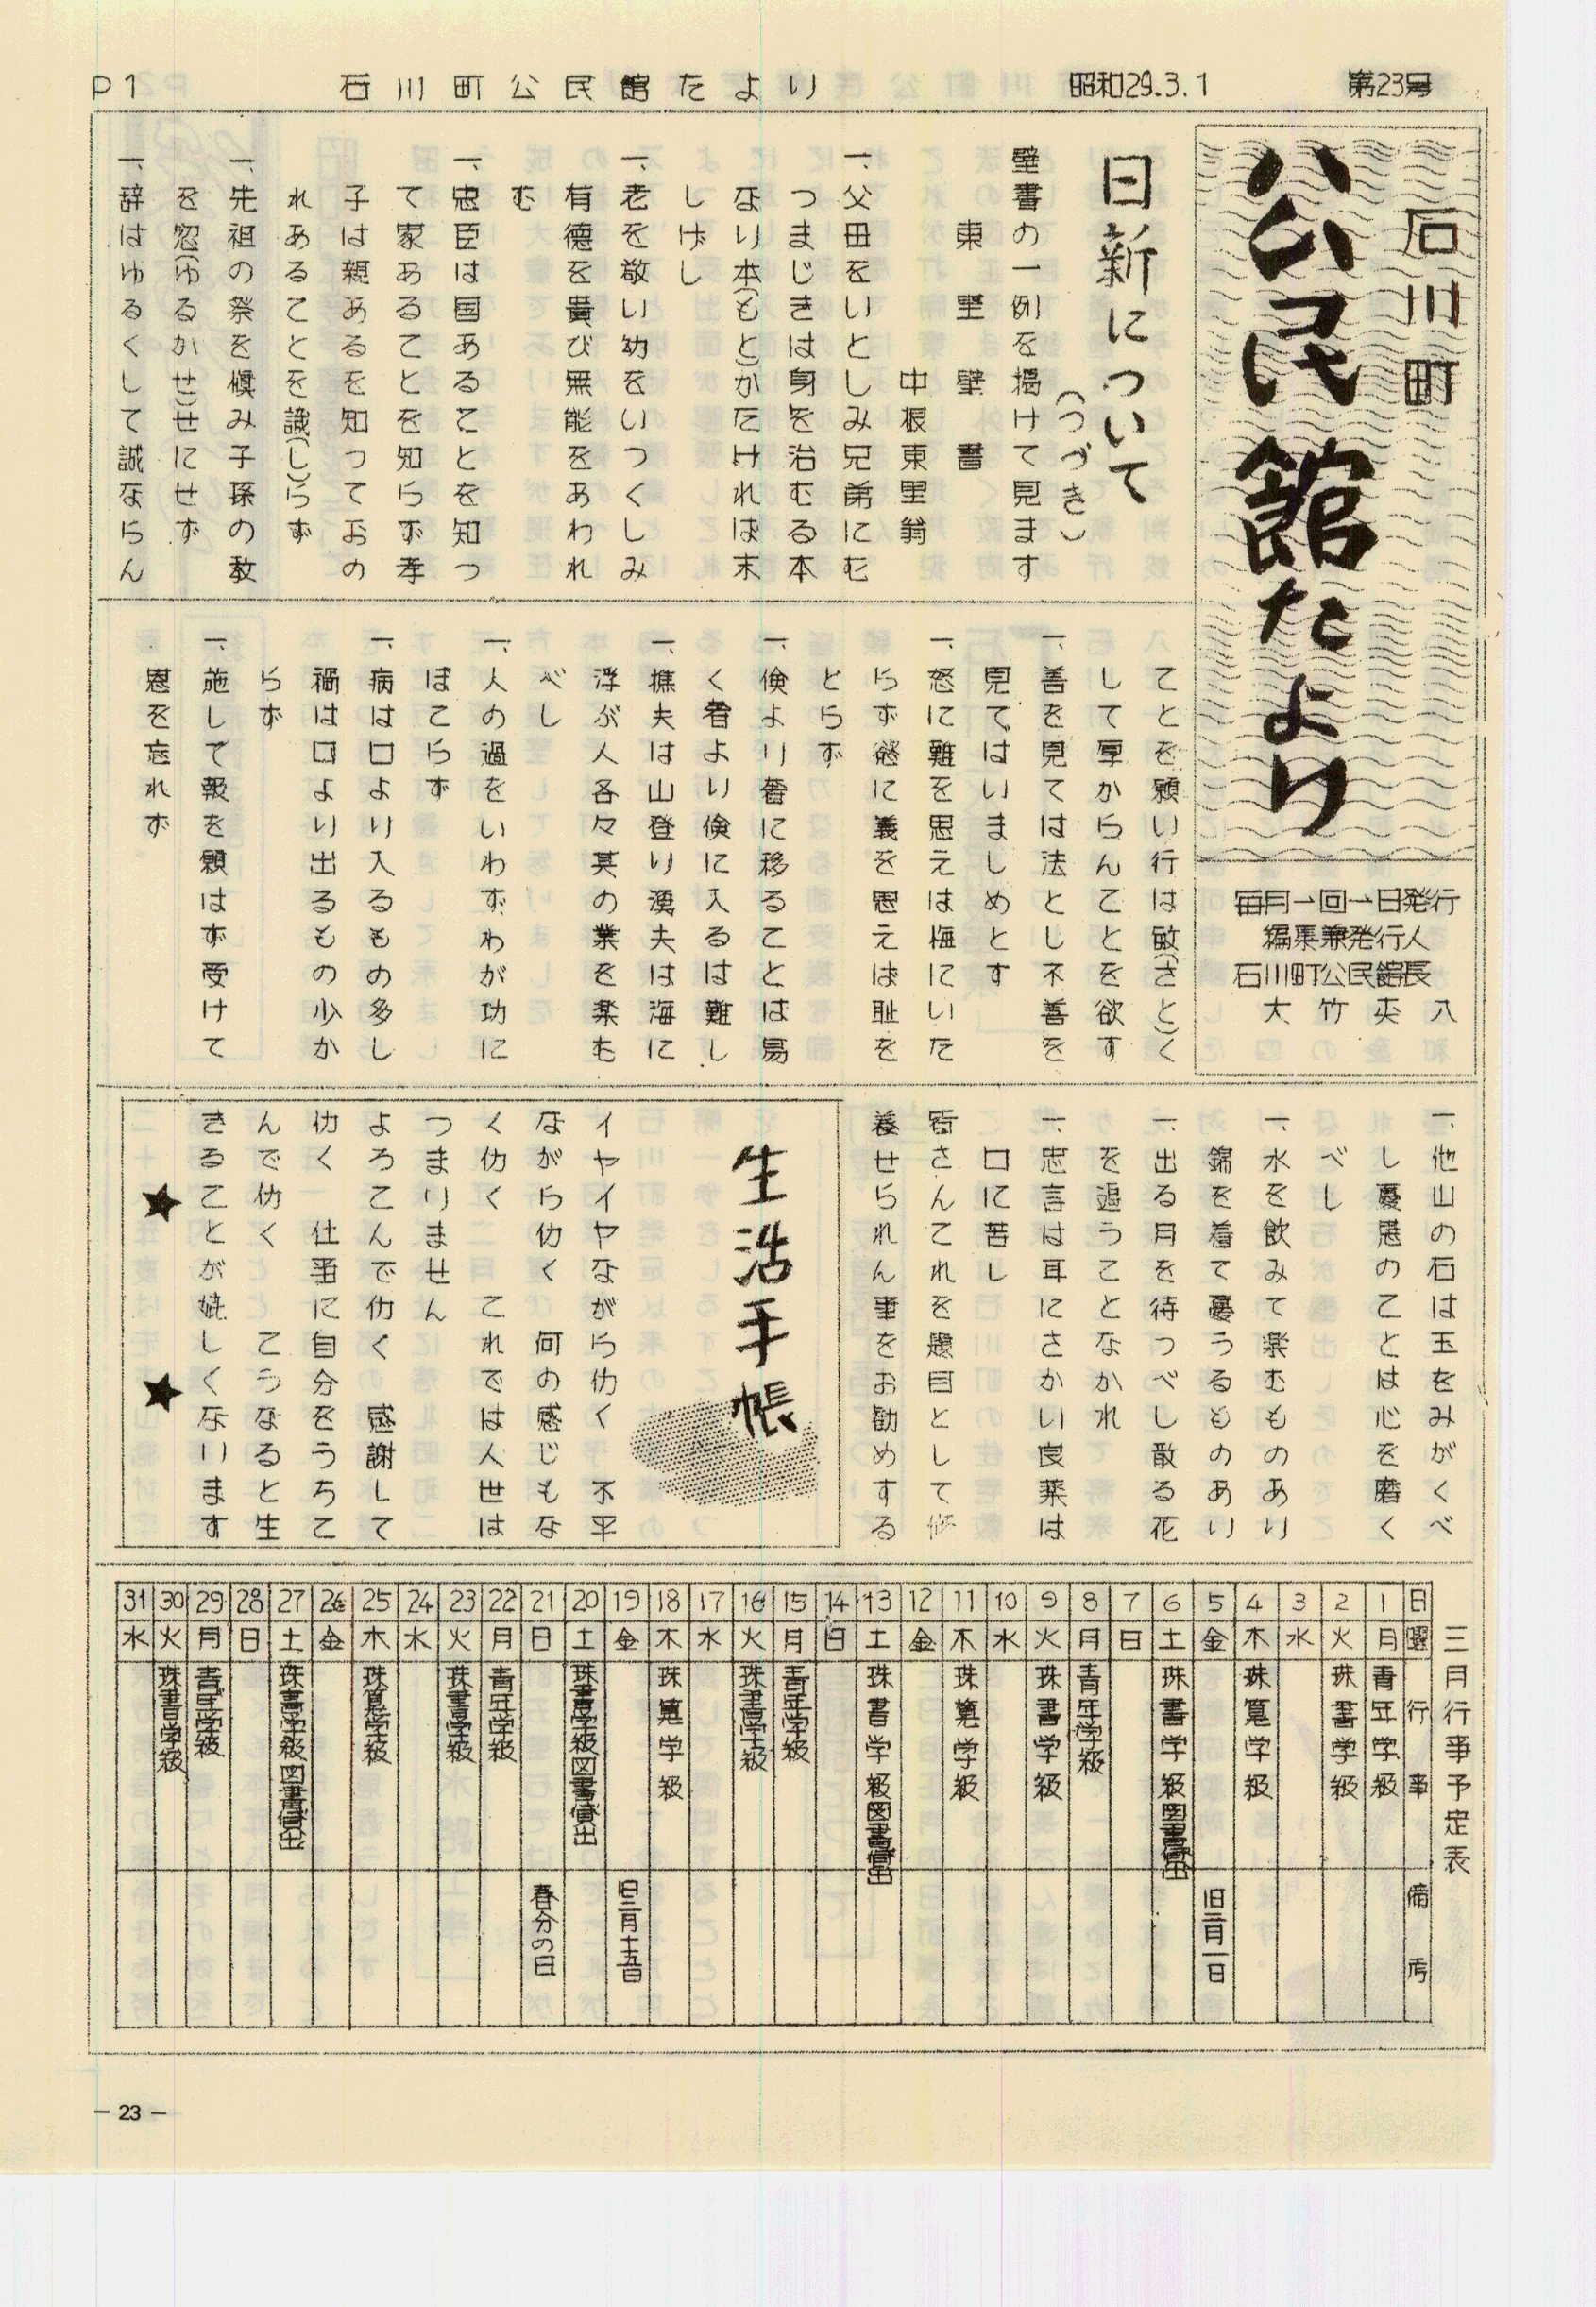 P1　石川町公民館たより　昭和29.3.1　第23号
石川町
公民館たより
毎月一回一日発行
編集兼発行人
石川町公民館長
大竹英八
日新について
（つづき）
壁書の一例を掲けて見ます
東里壁書
中根東里翁
一、父母をいとしみ兄弟にむ
つまじきは身を治むる本
なり本（もと）かたければ末
しげし
一、老を敬い幼をいつくしみ
有德を貴び無能をあわれ
む
一、忠臣は国あることを知つ
て家あることを知らず孝
子は親あるを知つておの
れあることを識（し）らず
一、先祖の祭を愼み子孫の教
を忽（ゆるかせ）せにせず
一、辞はゆるくして誠ならん
ことを願い行は敏（さと）く
して厚からんことを欲す
一、善を見ては法とし不善を
見てはいましめとす
一、怒に難を思えは悔にいた
らず慾に義を思えは恥を
とらず
一、倹より奢に移ることは易
く奢より倹に入るは難し
一、樵夫は山登り漁夫は海に
浮ぶ人各々其の業を楽む
べし
一、人の過をいわずわが功に
ほこらず
一、病は口より入るもの多し
禍は口より出るもの少か
らず
一、施して報を願はず受けて
恩を忘れず
一、他山の石は玉をみがくべ
し憂患のことは心を磨く
べし
一、水を飲みて楽むものあり
錦を着て憂うるものあり
一、出る月を待つべし散る花
を追うことなかれ
一、忠言は耳にさかい良薬は
口に苦し
皆さんこれを題目として修
養せられん事をお勧めする
生活手帳
イヤイヤながら仂く　不平
ながら仂く　何の感じもな
く仂く　これでは人世は
つまりません
よろこんで仂く　感謝して
仂く　仕事に自分をうちこ
んで仂く　こうなると生
きることが嬉しくなります
★　★
三月行事予定表
日　曜　行事　備考
1　月　青年学級
2　火　珠書学級
3　水
4　木　珠算学級
5　金　旧二月一日
6　土　珠書学級図書貸出
7　日
8　月　青年学級
9　火　珠書学級
10　水
11　木　珠算学級
12　金
13　土　珠書学級図書貸出
14　日
15　月　青年学級
16　火　珠書学級
17　水
18　木　珠算学級
19　金　旧二月十五日
20　土　珠書学級図書貸出
21　日　春分の日
22　月　青年学級
23　火　珠書学級
24　水
25　木　珠算学級
26　金
27　土　珠書学級図書貸出
28　日
29　月　青年学級
30　火　珠書学級
31　水
— 23 —